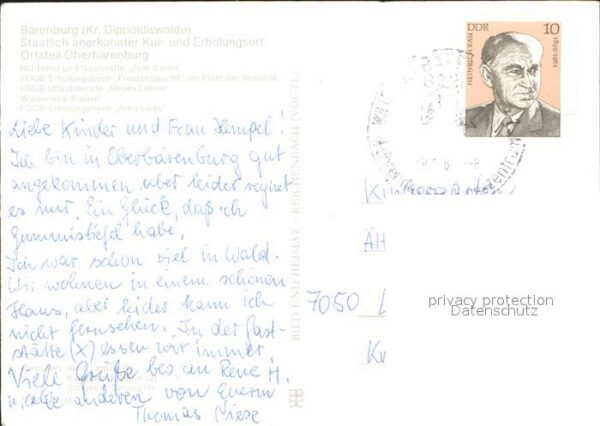 Bärenburg (Kr. Dippoldiswalde)
Staatlich anerkannter Kur- und Erholungsort
Ortsteil Oberbärenburg
HO-Hotel und Gaststätte „Zum Bären"
FDGB-Erholungsheim „Friedenswacht" am Platz der Republik
FDGB-Urlauberheim „Neues Leben"
FDGB-Erholungsheim
Liebe Kinder und Frau Hempel!
Ich bin in Oberbärenburg gut
angekommen, aber leider regnet
es nur. Ein Glück, daß ich
Gummistiefel habe.
Ich war schon viel in Wald.
Wir wohnen in einem schönen
Haus, aber leider kann ich
nicht fernsehen. In der Gast-
stätte (X) essen wir immer.
Viele Grüße bes. an Rene H.
u. alle anderen von Euerm
Thomas Miese
BILD UND HEIMAT · REICHENBACH (VOGTL)
DDR 10
HEINRICH RAU
1899-1961
ÄH
7050 L
privacy protection
Datenschutz